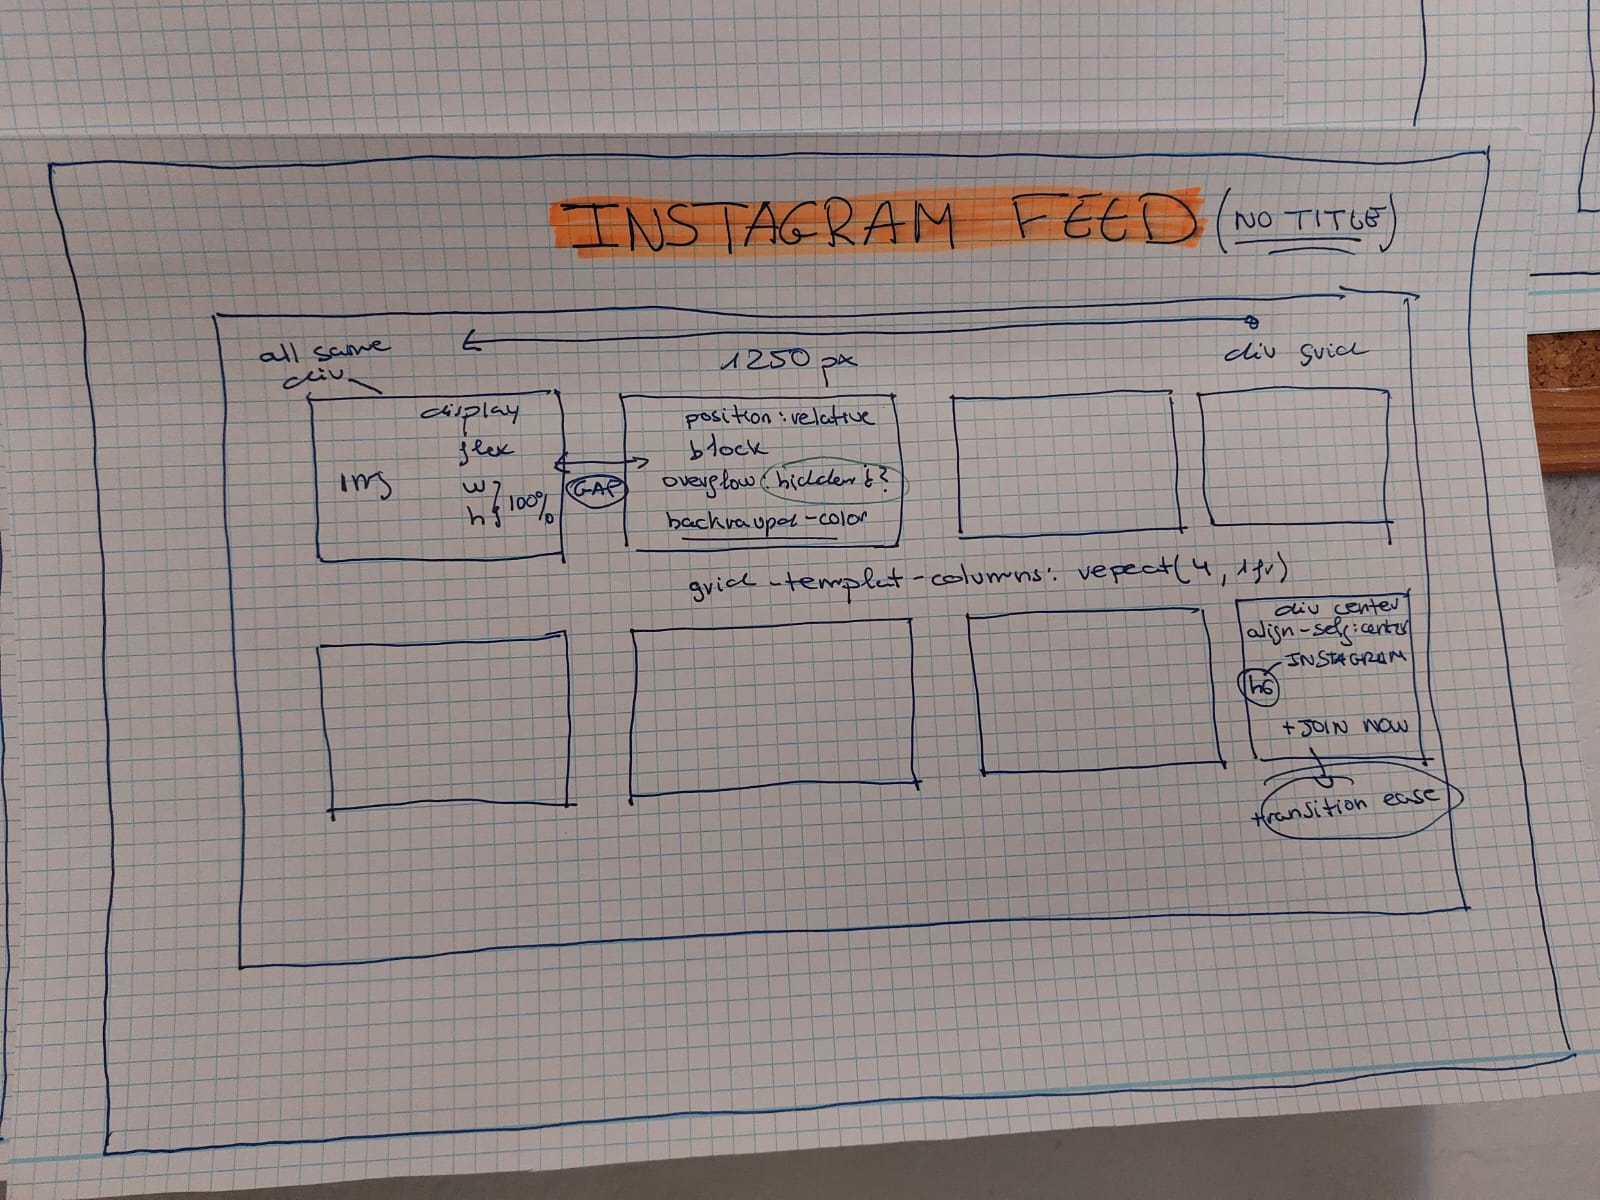 INSTAGRAM FEED (NO TITLE)
all same
div
1250 px
div grid
display
flex
img
w
h } 100%
GAP
position: relative
block
overflow: hidden?
backraupd-color
grid-templat-columns: repeat(4, 1fr)
div center
align-self: center
INSTAGRAM
h6
+ JOIN NOW
transition ease